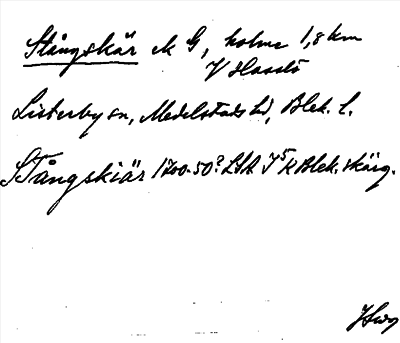 Stångskär ek G, holme 1,8 km
V Haastö
Listerby sn, Medelstads hd, Blek. l.
Stångskiär 1700.50? LSA I 5 k Blek. skärg.